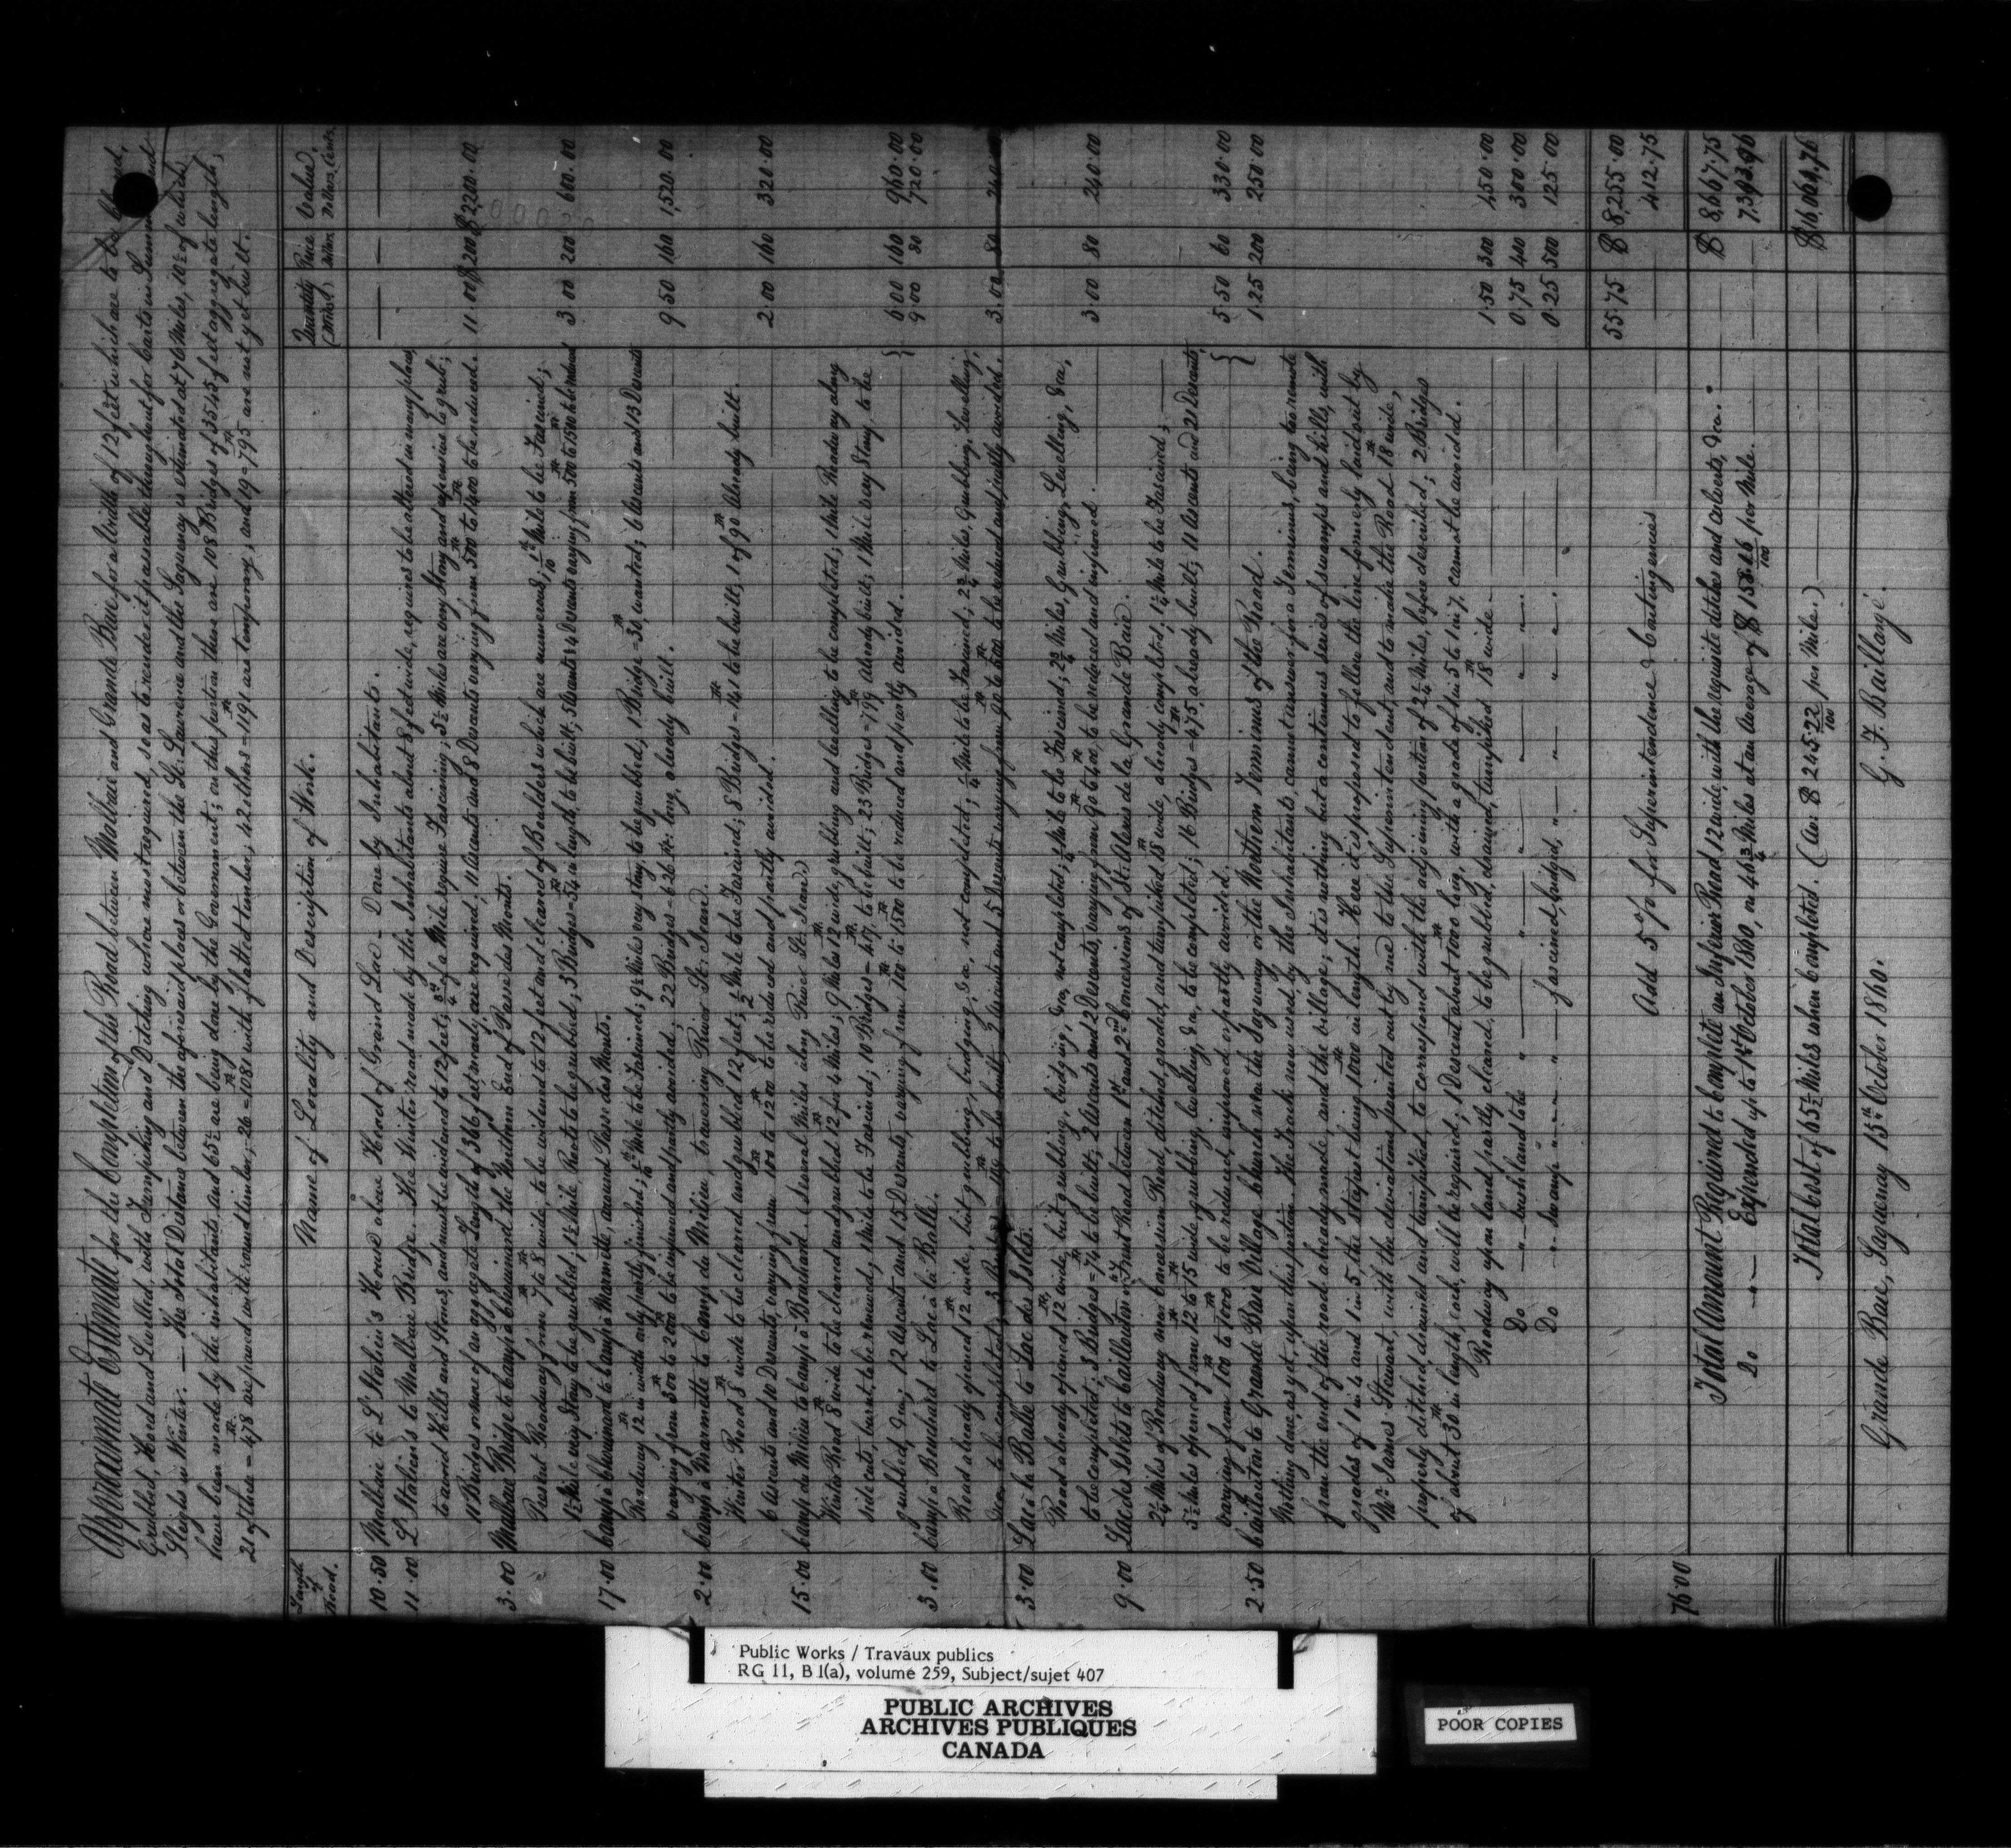 Approximate Estimate for the Completion of the Road between Malbaie and Grande Baie for a Width of 12 feet which are to be
Grubbed, Stoned and Levelled, with Turnpiking and Ditching where most required, so as to render it passable throughout for Carts in Summer and
Sleighs in Winter. — The Total Distance between the aforesaid places or between the St. Lawrence and the Saguenay is estimated at 76 Miles, 10½ of which
have been made by the inhabitants and 65½ are being done by the Government; on this portion there are 108 Bridges of 3545 feet aggregate length;
21 of these = 478 ft are paved with round timber; 26 = 1081 ft with flatted timber; 42 others = 1191 ft are temporary; and 19 = 795 ft are not yet built.
Length of Road.
Name of Locality and Description of Work.
Quantity (Miles)
Price Dollars
Value, Dollars, Cents.
10.50 Malbaie to L'Italien's House above Head of Grand Lac — Done by Inhabitants. — — —
11.00 L'Italien's to Malbaie Bridge. The Winter road made by the Inhabitants about 8 feet wide, requires to be altered in many places
to avoid Hills and Stones, and must be widened to 12 feet; ¾ of a Mile require Fascining; 5½ Miles are very Stony and expensive to grub;
11 Bridges or more of an aggregate Length of 366 feet nearly are required; 11 Ascents and 8 Descents varying from 500 to 1400 ft to be reduced. 11.00 $200 $2200.00
3.00 Malbaie Bridge to Camp à Chouinard the Northern End of Passe des Monts.
Present Roadway from 7 to 8 ft wide, to be widened to 12 feet and cleared of Boulders which are numerous; 1/10th Mile to be Fascined;
1½ Mile very Stony to be grubbed; 1½ Mile, Roots to be grubbed; 3 Bridges = 54 ft in length, to be built; 5 Ascents & 4 Descents varying from 500 to 1500 ft to be reduced 3.00 200 600.00
17.00 Camp à Chouinard to Camp à Marmette, around Passe des Monts.
Roadway 12 ft in width only partly finished; Mile to be Fascined; 9½ Miles very stony, to be grubbed; 1 Bridge = 30 ft, wanted; 6 Ascents and 13 Descents
varying from 300 to 2000 ft to be improved and partly avoided; 22 Bridges = 626 ft long, already built. 9.50 160 1,520.00
2.00 Camp à Marmette to Camp du Milieu, traversing River St. Jean.
Winter Road 8 ft wide to be cleared and grubbed 12 feet; ½ Mile to be Fascined; 8 Bridges = 141 ft to be built; 1 of 90 ft already built.
6 Ascents and 10 Descents, varying from 100 to 1200 ft to be reduced and partly avoided. 2.00 160 320.00
15.00 Camp du Milieu to Camp à Bouchard. (Several Miles along River St. Jean.)
Winter Road 8 ft wide to be cleared and grubbed 12 ft for 6 Miles; 9 Miles 12 ft wide, grubbing and levelling to be completed; 1 Mile Roadway along
side cuts, burnt, to be renewed; 1 Mile to be Fascined; 10 Bridges = 417 ft to be built; 23 Bridges = 799 ft Already built; 1 Mile very Stony, to be
grubbed, &ca; 12 Ascents and 15 Descents, varying from 100 to 1500 ft to be reduced and partly avoided. 6.00 160 960.00
9.00 80 720.00
3.00 Camp à Bouchard to Lac à la Balle.
Road already opened 12 ft wide, but grubbing, bridging, &ca, not completed; ¼ Mile to be Fascined; 2¾ Miles, Grubbing, Levelling,
&ca, to be completed; 3 Bridges to be built; 2 Ascents and 5 Descents varying from 90 to 500 ft to be reduced and partly avoided. 3.00 80 240.00
3.00 Lac à la Balle to Lac des Islets.
Road already opened 12 ft wide, but grubbing, bridging, &ca, not completed; ¼ Mile to be Fascined; 2¾ Miles, Grubbing, Levelling, &ca,
to be completed; 3 Bridges = 74 ft to be built; 2 Ascents and 2 Descents, varying from 90 to 400 ft, to be reduced and improved. 3.00 80 240.00
9.00 Lac des Islets to Caillouton or Front Road between 1st and 2nd Concessions of St. Alexis de la Grande Baie.
2¼ Miles of Roadway near Concession Road, ditched, graded, and turnpiked 18 ft wide, already completed; 1¼ Mile to be Fascined;
5½ Miles opened from 12 to 15 ft wide, grubbing, levelling, &ca, to be completed; 16 Bridges = 475 ft already built; 11 Ascents and 21 Descents,
varying from 100 to 1000 ft to be reduced, improved or partly avoided. 5.50 60 330.00
1.25 200 250.00
2.50 Cailloutton to Grande Baie Village Church upon the Saguenay or the Northern Terminus of the Road.
Nothing done, as yet, upon this portion. The Track now used, by the Inhabitants, cannot answer for a Terminus, being too remote
from the end of the road already made, and the village; it is nothing but a continuous series of swamps and hills, with
grades of 1 in 4 and 1 in 5, the steepest being 1000 ft in length. Here it is proposed to follow the line formerly laid out by
Mr. James Stewart, with the deviations pointed out by me to the Superintendent, and to make the Road 18 ft wide,
properly ditched, drained and turnpiked, to correspond with the adjoining portion of 2¼ Miles, before described; 2 Bridges
of about 30 ft in length, each, will be required; 1 Descent about 1000 ft long, with a grade of 1 in 5 to 1 in 7, cannot be avoided.
Roadway upon land partly cleared, to be grubbed, drained, turnpiked 18 ft wide — 1.50 300 450.00
Do — " — bush land to be " — " — " — " — " 0.75 400 300.00
Do — " — swamp " — " — " — fascined, bridged, " — " — " — " 0.25 500 125.00
55.75 $ $8,255.00
Add 5 % for Superintendence & Contingencies 412.75
76.00
Total Amount Required to complete an Inferior Road 12 ft wide, with the requisite ditches and culverts, &ca. $ 8,667.75
Do — " — Expended up to 1st October 1860, on 46¾ Miles at an Average of $ per Mile. 7,393.96
Total Cost of 65½ Miles when completed. (Av. $245.22/100 per Mile.) $16,061.76
Grande Baie, Saguenay 15th October 1860. G. F. Baillargé.
Public Works / Travaux publics
RG 11, B 1(a), volume 259, Subject/sujet 407
PUBLIC ARCHIVES
ARCHIVES PUBLIQUES
CANADA
POOR COPIES